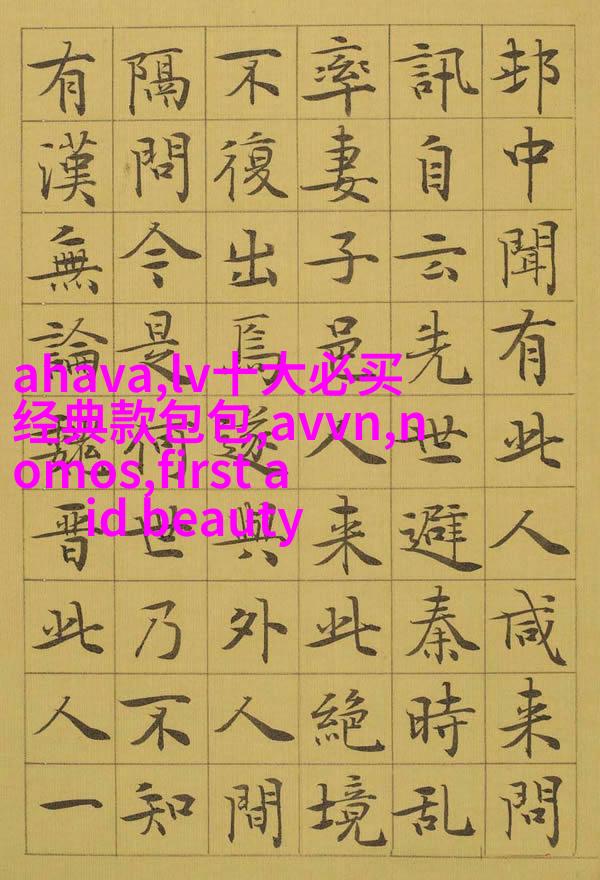 邨中聞有此人咸来問
訊自云先世避秦時乱
率妻子邑人来此絶境
不復出焉遂與外人間
隔問今是何世乃不知
有漢無論魏晋此人一
ahava,lv十大必买
经典款包包,avvn,n
omos,first a
id beauty